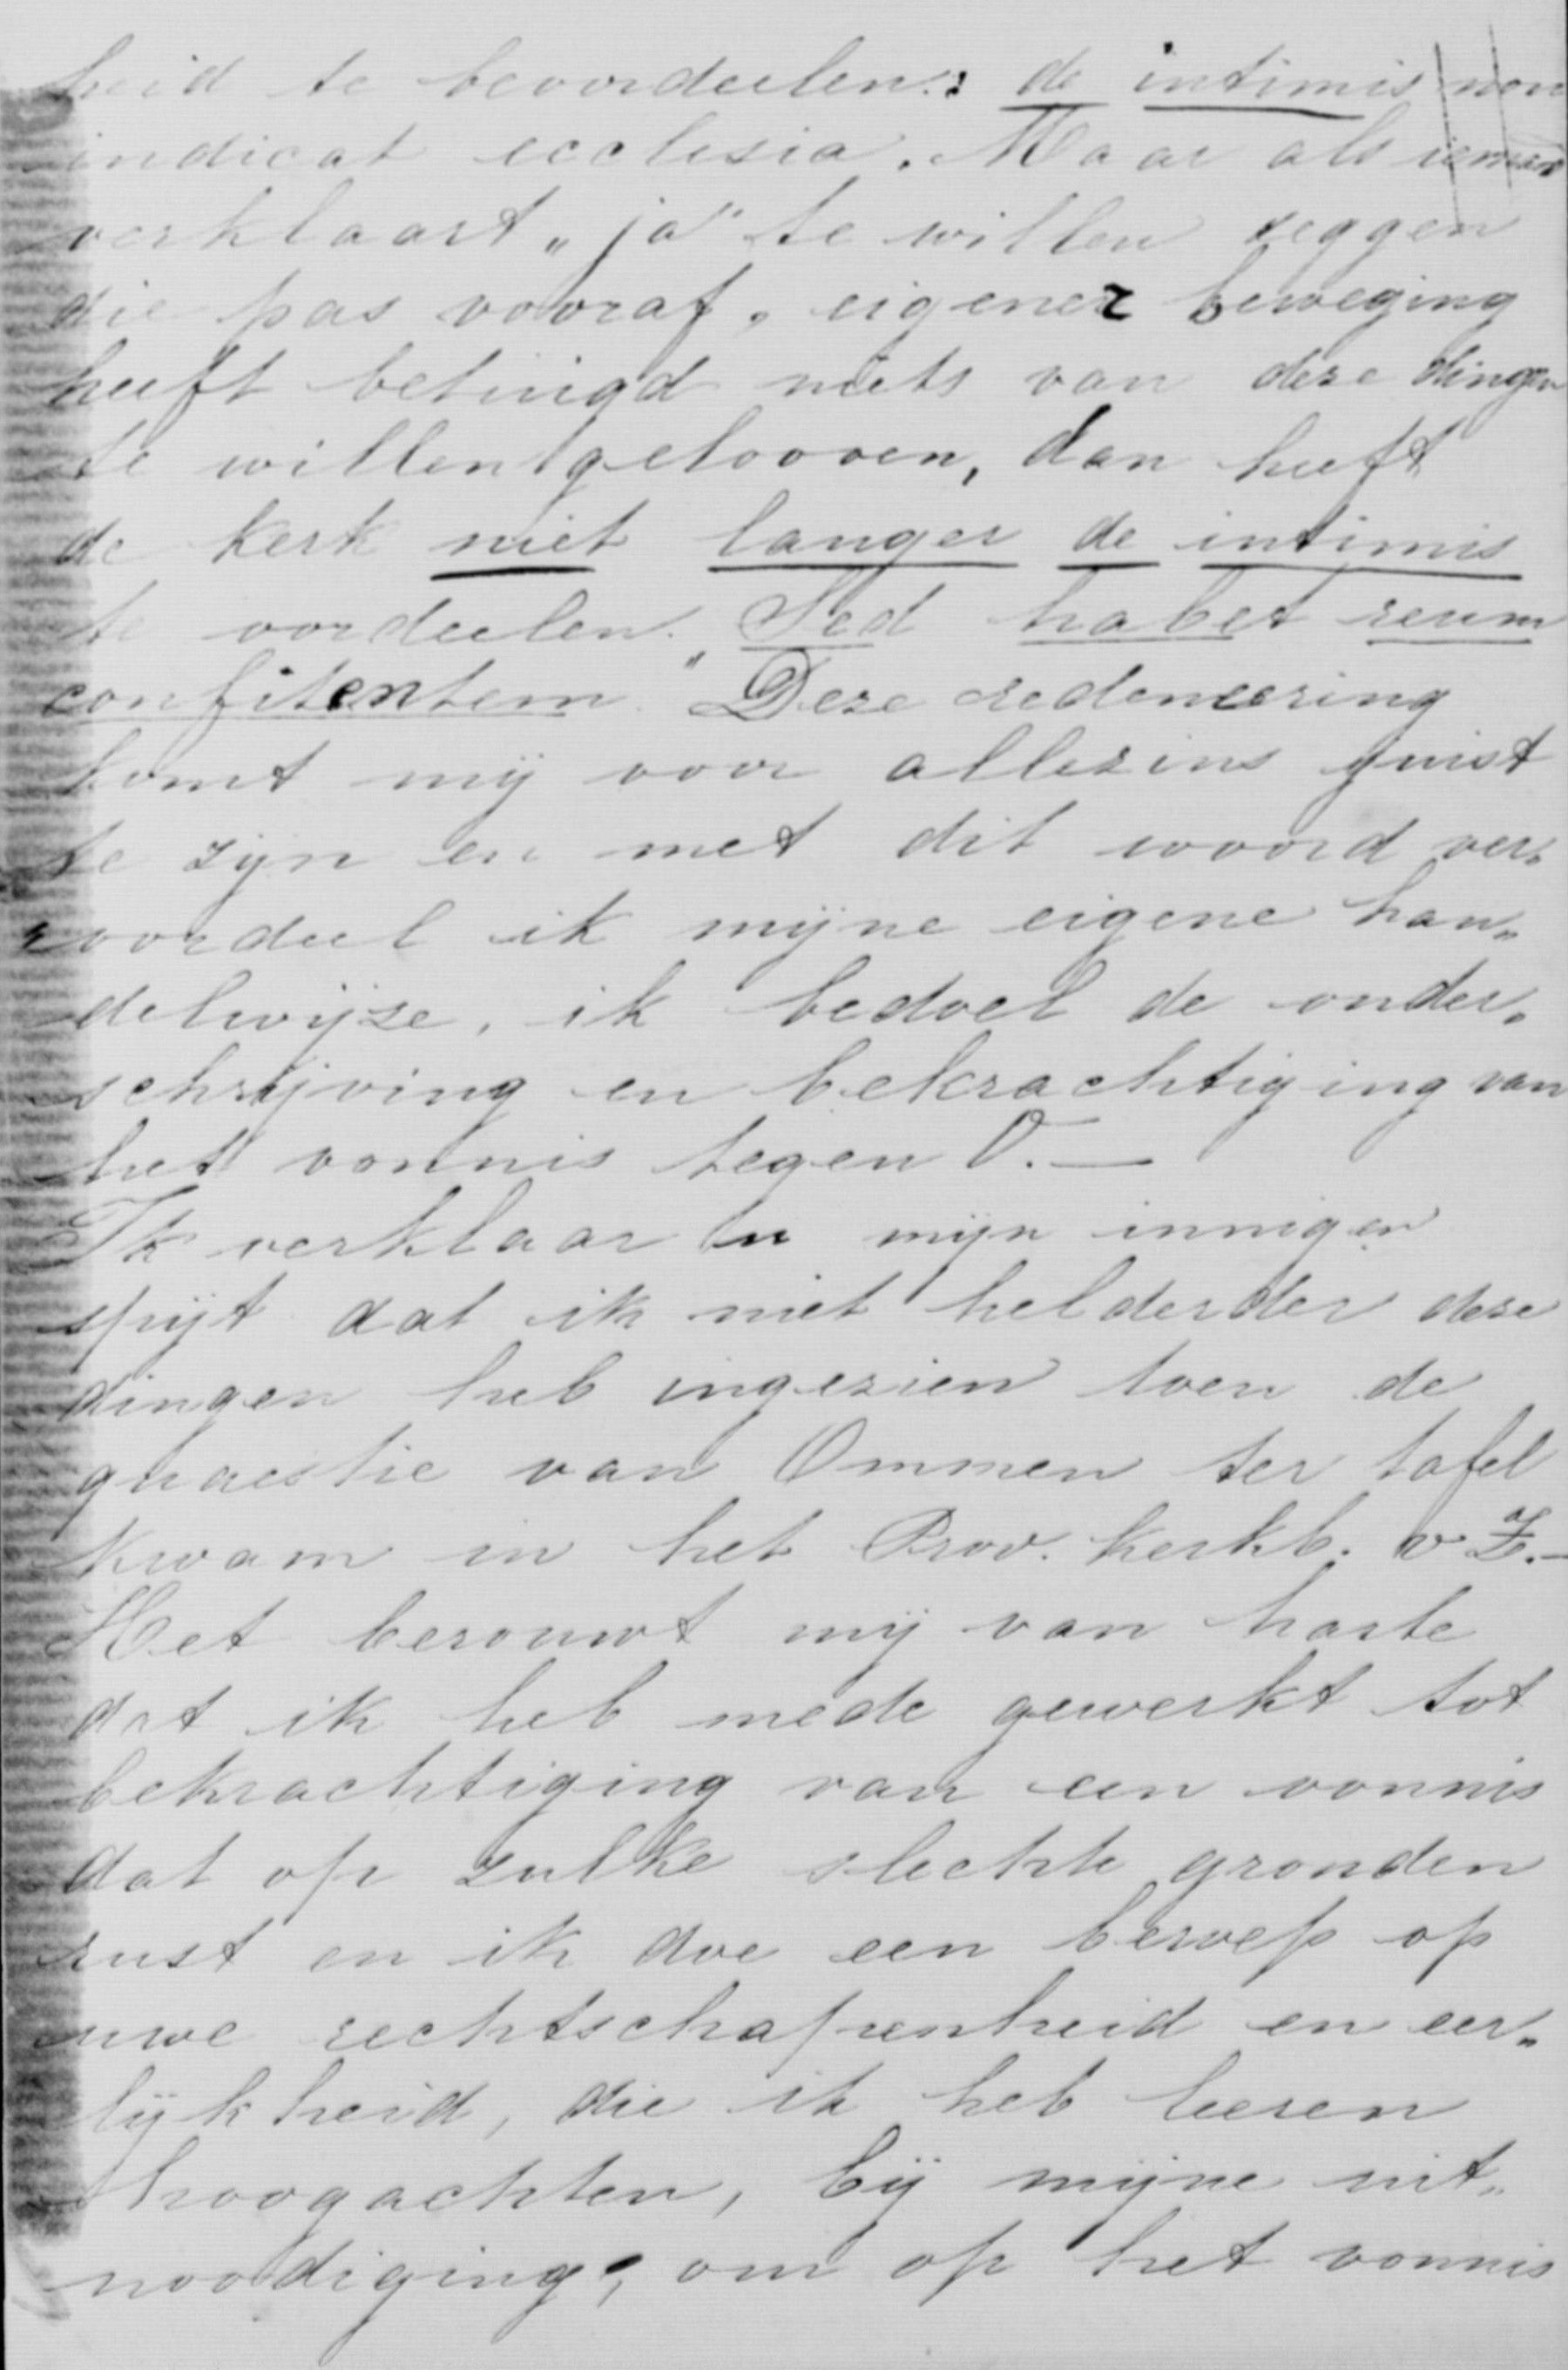 heid te beoordeelen: de intimis non
indicat ecclesia. Maar als iemand
verklaart „ja" te willen zeggen
die pas vooraf, eigener beweging
heeft betuigd niets van deze dingen
te willen gelooven, dan heeft
de kerk niet langer de intimis
te oordeelen. Sed habet reum
confitentem." Deze redeneering
komt mij voor allezins juist
te zijn en met dit woord ver„
oordeel ik mijne eigene han„
delwijze, ik bedoel de onder„
schrijving en bekrachtiging van
het vonnis tegen O. —
Ik verklaar u mijn innigen
spijt dat ik niet helderder deze
dingen heb ingezien toen de
quaestie van Ommen ter tafel
kwam in het Prov. kerkb. v Z. —
Het berouwt mij van harte
dat ik heb mede gewerkt tot
bekrachtiging van een vonnis
dat op zulke slechte gronden
rust en ik doe een beroep op
uwe rechtschapenheid en eer„
lijkheid, die ik heb leeren
hoogachten, bij mijne uit„
noodiging, om op het vonnis